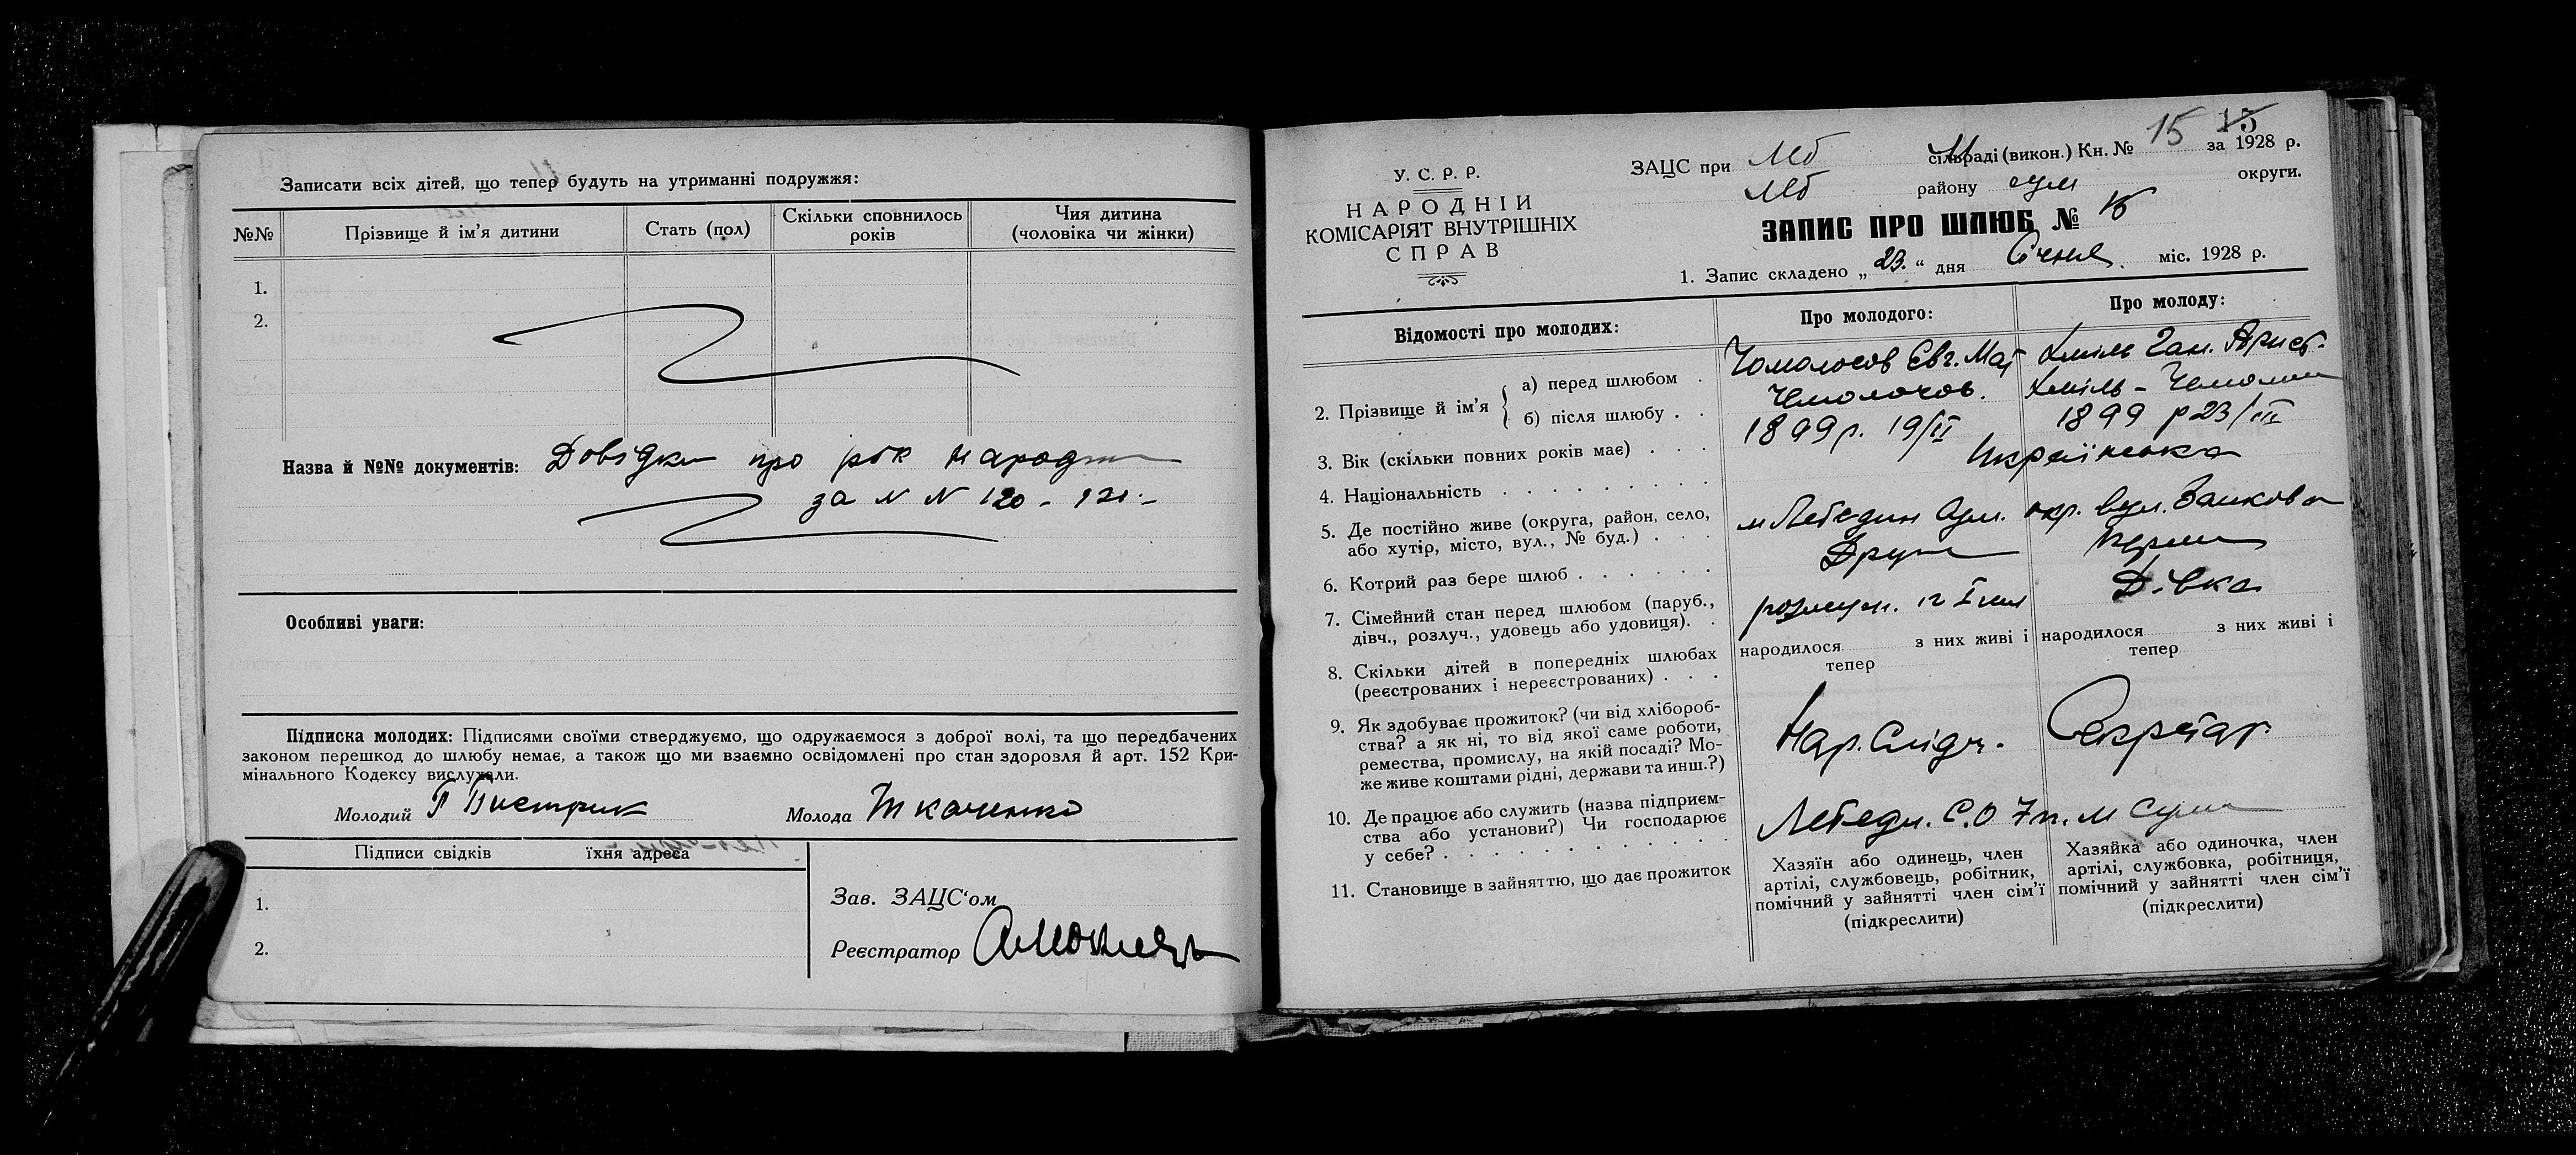 Записати всіх дітей, що тепер будуть на утриманні подружжя:
№№ Прізвище й ім'я дитини Стать (пол) Скільки сповнилось років Чия дитина (чоловіка чи жінки)
1.
2.
Назва й №№ документів: Довідки про рік народж
за N N 120 - 121.-
Особливі уваги:
Підписка молодих: Підписами своїми стверджуємо, що одружаємося з доброї волі, та що передбачених
законом перешкод до шлюбу немає, а також що ми взаємно освідомлені про стан здоровля й арт. 152 Кри-
мінального Кодексу вислухали.
Молодий Бистрик Молода Ткаченко
Підписи свідків їхня адреса
1.
2.
Зав. ЗАЦС'ом
Реєстратор
У. С. Р. Р.
НАРОДНІЙ
КОМІСАРІЯТ ВНУТРІШНІХ
СПРАВ
ЗАЦС при Лб сільраді (викон.) Кн. № 15 15 за 1928 р.
Лб району Сум округи.
ЗАПИС ПРО ШЛЮБ № 15
1. Запис складено „23." дня Січня міс. 1928 р.
Відомості про молодих: Про молодого: Про молоду:
2. Прізвище й ім'я
а) перед шлюбом . Євг. Хміль Ган.
б) після шлюбу . . Хміль -
3. Вік (скільки повних років має) . . . 1899 р. 19/II 1899 р 23/III
4. Національність Українська
5. Де постійно живе (округа, район, село,
або хутір, місто, вул., № буд.) . . . м Лебедин Сум. окр. вул.
6. Котрий раз бере шлюб . . . . . . Друг Перш
7. Сімейний стан перед шлюбом (паруб.,
дівч., розлуч., удовець або удовиця). . розлуч. Дівка
8. Скільки дітей в попередніх шлюбах
(реєстрованих і нереєстрованих) . . .
народилося з них живі і
тепер
народилося з них живі і
тепер
9. Як здобуває прожиток? (чи від хлібороб-
ства? а як ні, то від якої саме роботи,
ремества, промислу, на якій посаді? Мо-
же живе коштами рідні, держави та инш.?)
Нар. Слідч. Секретар
10. Де працює або служить (назва підприєм-
ства або установи?) Чи господарює
у себе? Лебедин. С.О 7 п. м Суми
11. Становище в зайняттю, що дає прожиток
Хазяїн або одинець, член
артілі, службовець, робітник,
помічний у зайнятті член сім'ї
(підкреслити)
Хазяйка або одиночка, член
артілі, службовка, робітниця,
помічний у зайнятті член сім'ї
(підкреслити)